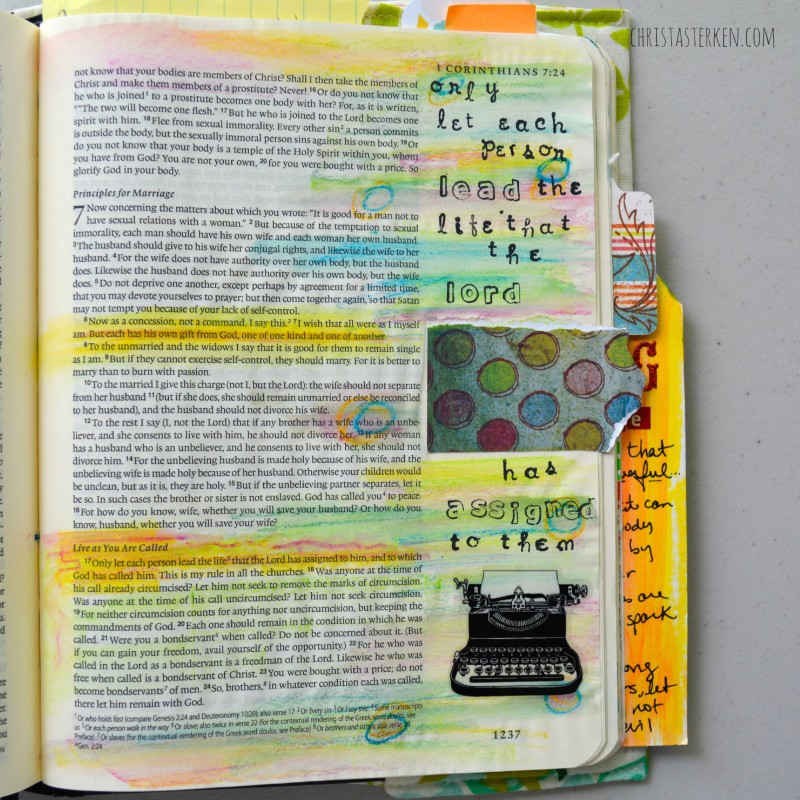 CHRISTASTERKEN.COM
not know that your bodies are members of Christ? Shall I then take the members of
Christ and make them members of a prostitute? Never! 16 Or do you not know that
he who is joined1 to a prostitute becomes one body with her? For, as it is written,
"The two will become one flesh." 17 But he who is joined to the Lord becomes one
spirit with him. 18 Flee from sexual immorality. Every other sin2 a person commits
is outside the body, but the sexually immoral person sins against his own body. 19 Or
do you not know that your body is a temple of the Holy Spirit within you, whom
you have from God? You are not your own, 20 for you were bought with a price. So
glorify God in your body.
Principles for Marriage
7 Now concerning the matters about which you wrote: "It is good for a man not to
have sexual relations with a woman." 2 But because of the temptation to sexual
immorality, each man should have his own wife and each woman her own husband.
3 The husband should give to his wife her conjugal rights, and likewise the wife to her
husband. 4 For the wife does not have authority over her own body, but the husband
does. Likewise the husband does not have authority over his own body, but the wife
does. 5 Do not deprive one another, except perhaps by agreement for a limited time,
that you may devote yourselves to prayer; but then come together again, so that Satan
may not tempt you because of your lack of self-control.
6 Now as a concession, not a command, I say this. 7 I wish that all were as I myself
am. But each has his own gift from God, one of one kind and one of another.
8 To the unmarried and the widows I say that it is good for them to remain single
as I am. 9 But if they cannot exercise self-control, they should marry. For it is better to
marry than to burn with passion.
10 To the married I give this charge (not I, but the Lord): the wife should not separate
from her husband 11 (but if she does, she should remain unmarried or else be reconciled
to her husband), and the husband should not divorce his wife.
12 To the rest I say (I, not the Lord) that if any brother has a wife who is an unbe-
liever, and she consents to live with him, he should not divorce her. 13 If any woman
has a husband who is an unbeliever, and he consents to live with her, she should not
divorce him. 14 For the unbelieving husband is made holy because of his wife, and the
unbelieving wife is made holy because of her husband. Otherwise your children would
be unclean, but as it is, they are holy. 15 But if the unbelieving partner separates, let it
be so. In such cases the brother or sister is not enslaved. God has called you4 to peace.
16 For how do you know, wife, whether you will save your husband? Or how do you
know, husband, whether you will save your wife?
Live as You Are Called
17 Only let each person lead the life5 that the Lord has assigned to him, and to which
God has called him. This is my rule in all the churches. 18 Was anyone at the time of
his call already circumcised? Let him not seek to remove the marks of circumcision.
Was anyone at the time of his call uncircumcised? Let him not seek circumcision.
19 For neither circumcision counts for anything nor uncircumcision, but keeping the
commandments of God. 20 Each one should remain in the condition in which he was
called. 21 Were you a bondservant6 when called? Do not be concerned about it. (But
if you can gain your freedom, avail yourself of the opportunity.) 22 For he who was
called in the Lord as a bondservant is a freedman of the Lord. Likewise he who was
free when called is a bondservant of Christ. 23 You were bought with a price; do not
become bondservants7 of men. 24 So, brothers,8 in whatever condition each was called,
there let him remain with God.
1 Or who holds fast (compare Genesis 2:24 and Deuteronomy 10:20); also verse 17 2 Or Every sin 3 Or I say this: 4 Some manuscripts
us 5 Or each person walk in the way 6 Or slave; also twice in verse 22 (for the contextual rendering of the Greek word doulos, see
Preface) 7 Or slaves (for the contextual rendering of the Greek word doulos, see Preface) 8 Or brothers and sisters; also verse
Gen. 2:24
1 CORINTHIANS 7:24
only
let each
person
lead the
life that
the
lord
has
assigned
to them
1237
G
e
that
can
by
are
spark
let
not